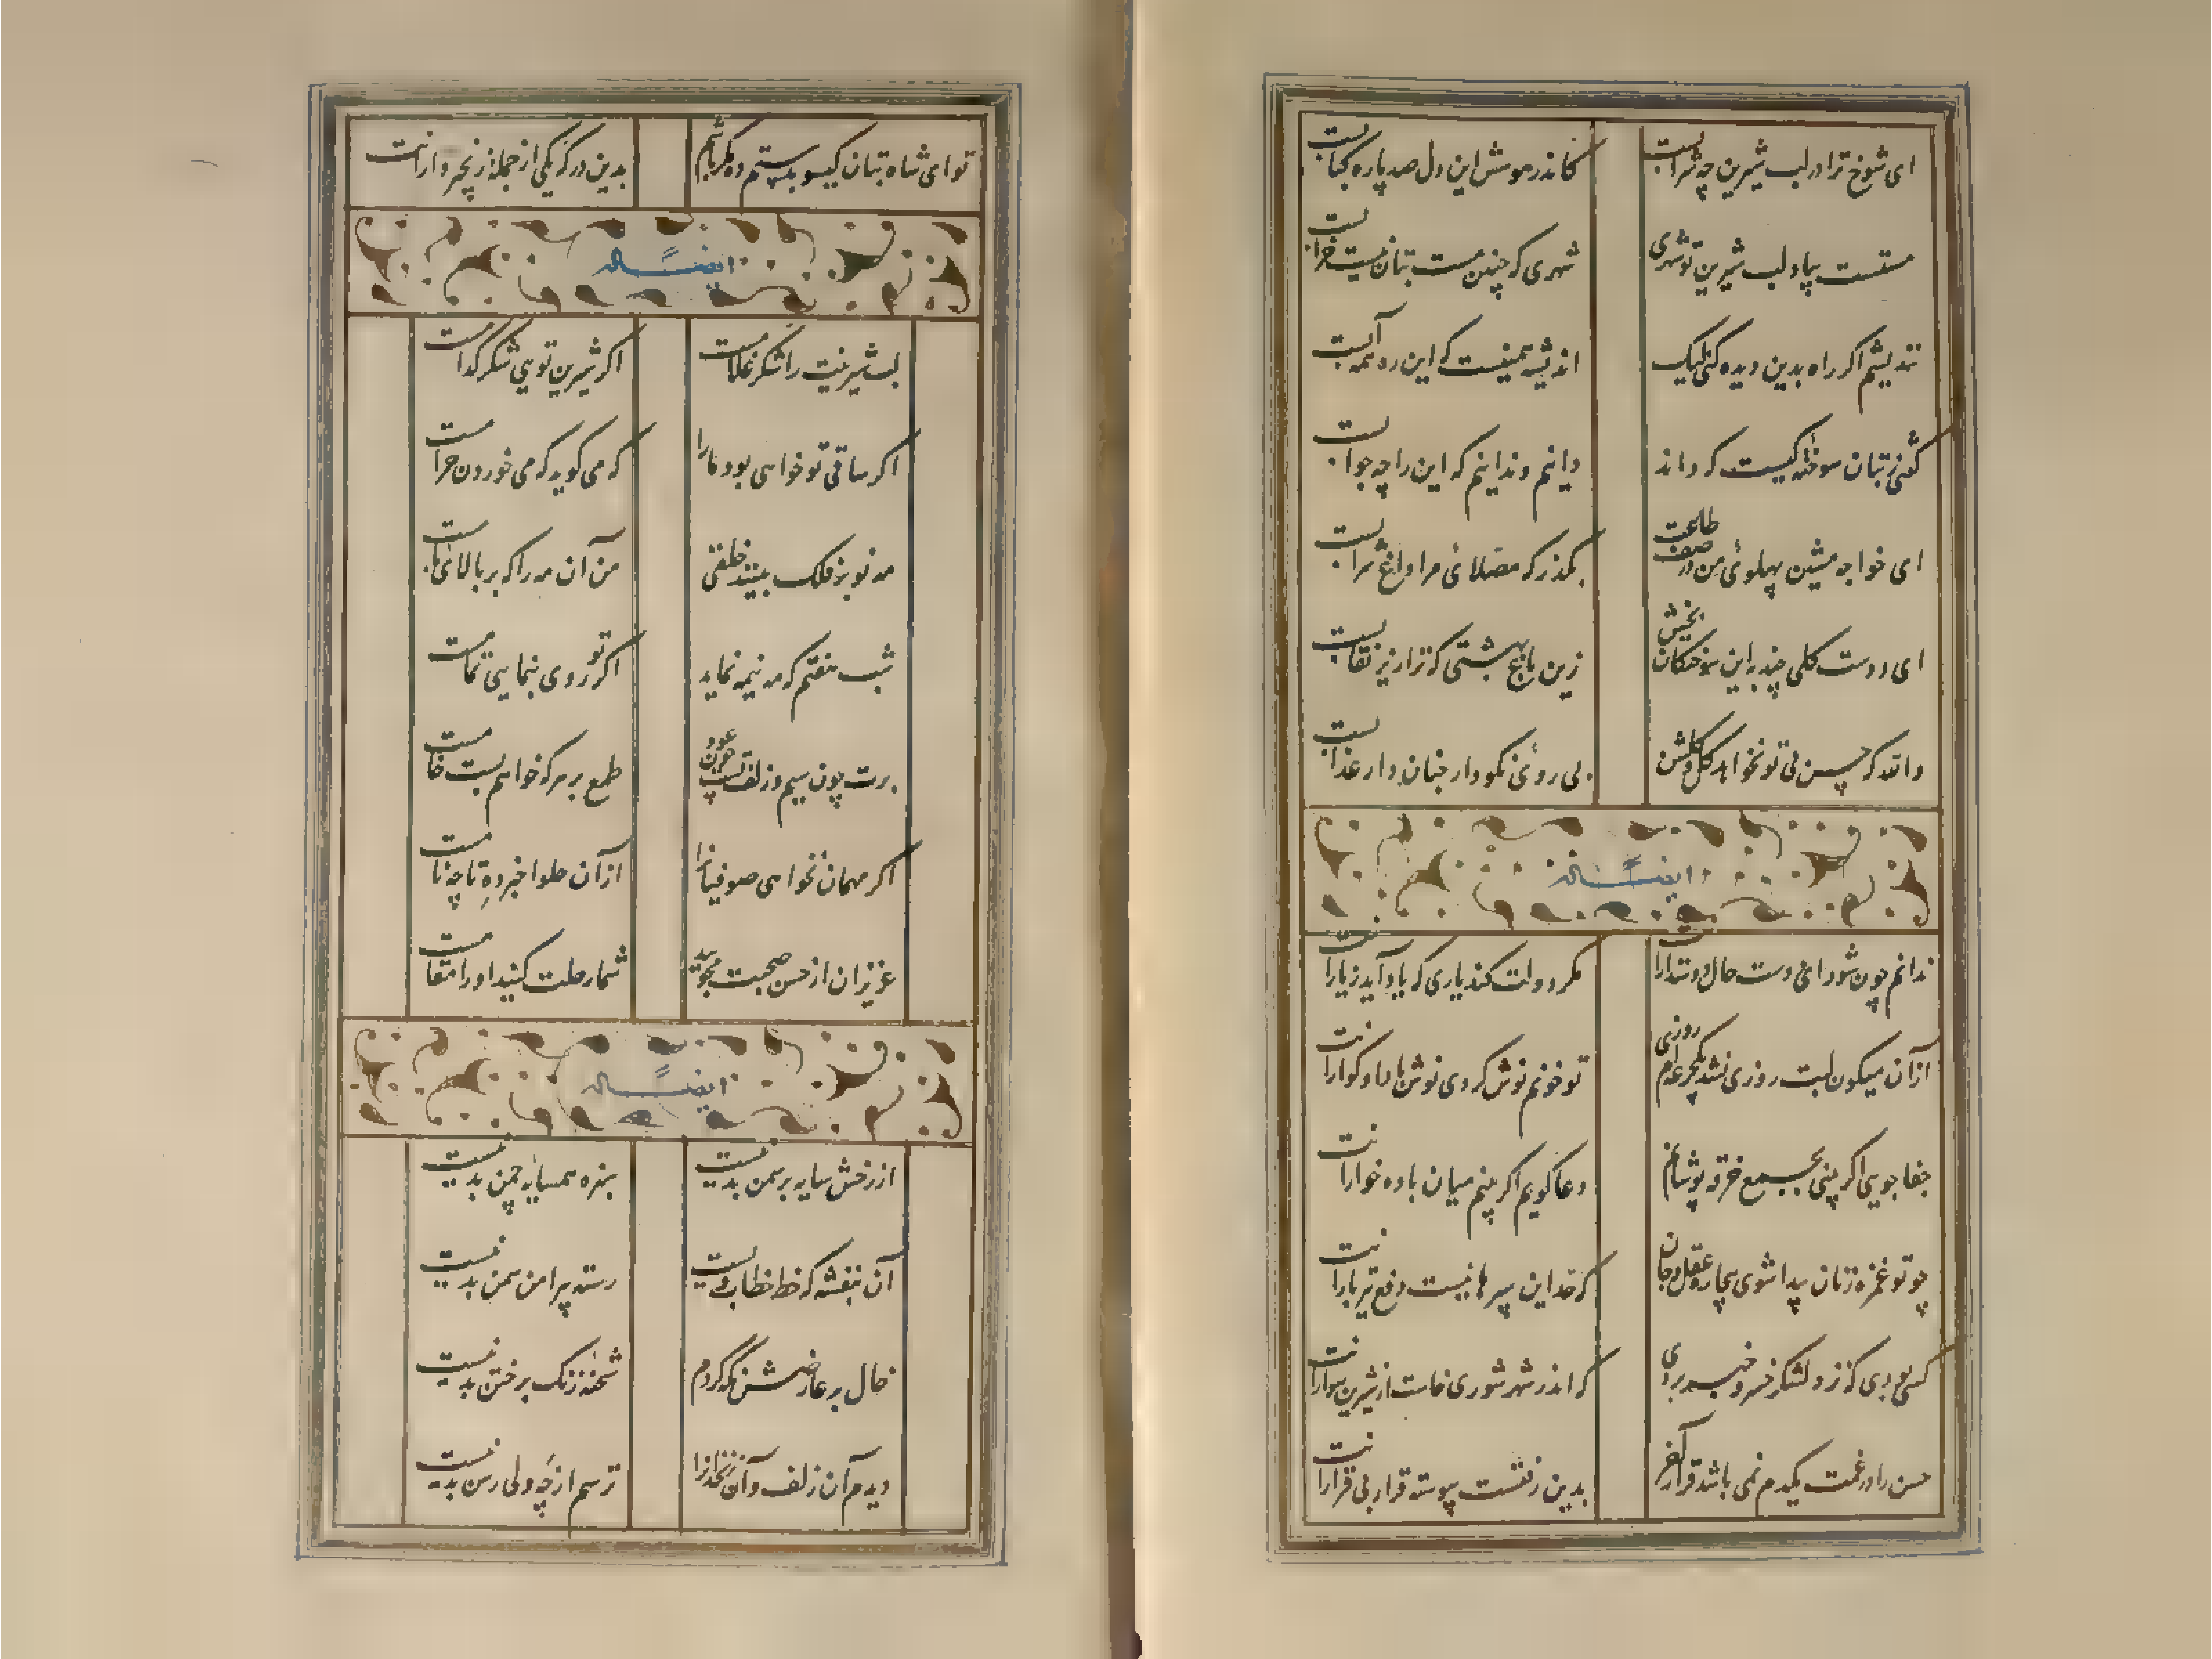 ای شوخ ترا در لب شیرین چه شرابست
کاندر هوسش این دل صد پاره کبابست
مستست بیاد لب شیرین تو شهری
شهری که چنین مست بتانیست خرابست
نندیشم اگر راه بدین دیده کنی لیک
اندیشه همینست که این ره همه آبست
گفتی ز بتان سوخته کیست که داند
دانم و ندانم که این را چه جوابست
ای خواجه منشین پهلوئی من در صف طاعت
بگذر که مصلائی مرا داغ شرابست
ای دوست گلی چند براین سوختگان بخش
زین باغ بهشتی که ترا زیر نقابست
والله که حسن بی تو نخواهد گل و گلشن
بی روئی نکو دار جنان دار عذابست
ایضاً له
ندانم چون شود ای دوست حال دوستدارانت
مگر دولت کند یاری که یاد آید ز یارانت
از آن میگون لبت روزی نشد یکجرعه‌ام روزی
تو خونم نوش کردی نوش بادا و گوارانت
جفا جویی اگر بینی بجمع خرقه پوشانم
دعا گویم اگر بینم میان باده خوارانت
چو تو غمزه زنان پیدا شوی بیچاره عقل و جان
که حد این سپرها نیست دفع تیربارانت
کسی بودی که نزد لشکر خسرو خبر بردی
که اندر شهر شوری خاست از شیرین سوارانت
حسن را در غمت یکدم نمی باشد قرار آخر
بدین زنقست پیوسته قرار بی قرارانت
تو ای شاه بتان گیسو بدستم ده مگر باشم
بدین درگه یکی از جمله زنجیر دارانت
ایضاً له
لب شیرینت را شکر غلامست
اگر شیرین تویی شکر کدامست
اگر ساقی تو خواهی بود ما را
که می گوید که می خوردن حرامست
مه نو بر فلک بینند خلقی
من آن مه را که بر بالای بامست
شب هفتم که مه نیمه نماید
اگر تو روی بنمایی تمامست
برت چون سیم و زلف چون عود
طمع بر هر که خواهم بست خامست
اگر مهمان نخواهی صوفیانرا
از آن حلوا خبر ده تا چه نامست
عزیزان از حسن صحبت مجویید
شما رحلت کنید او را مقامست
ایضاً له
از رخش سایه بر سمن بدنیست
سبزه همسایه چمن بدنیست
آن بنفشه که خط خطاب ویست
رسته پیرامن سمن بدنیست
خال بر عارضش نگه کردم
شحنه زنگ بر ختن بدنیست
دیدم آن زلف و آن زنخدانرا
ترسم از چه ولی رسن بدنیست